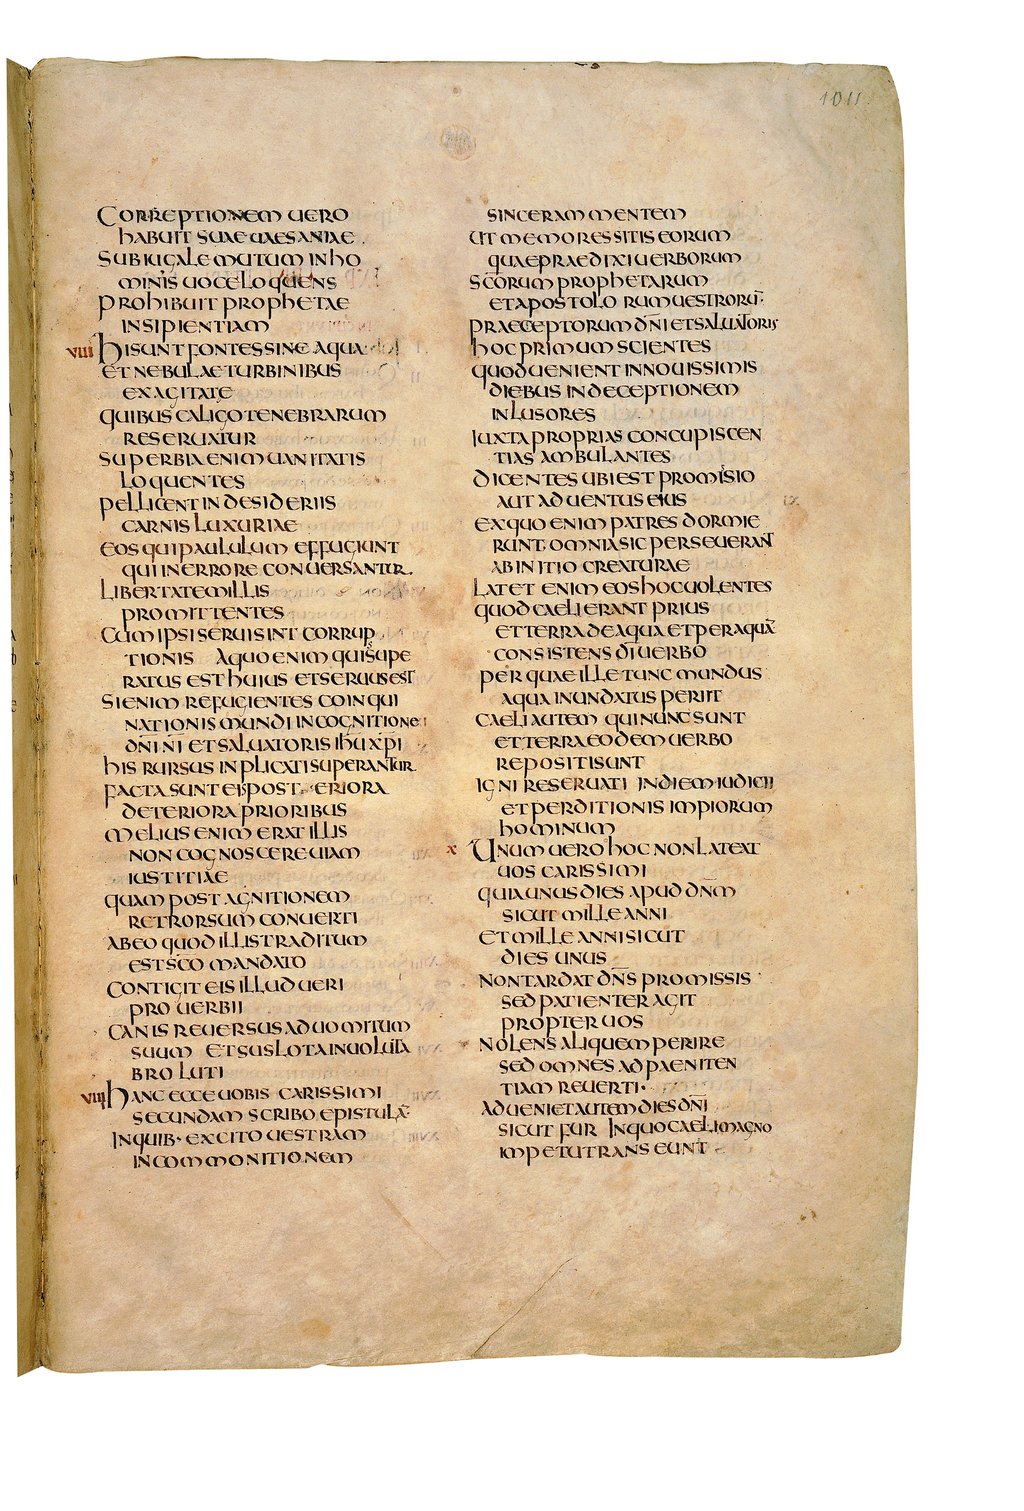 1011
CORREPTIONEM UERO
HABUIT SUAE UAESANIAE
SUBIUGALE MUTUM IN HO
MINIS UOCE LOQUENS
PROHIBUIT PROPHETAE
INSIPIENTIAM
VIII HI SUNT FONTES SINE AQUA
ET NEBULAE TURBINIBUS
EXAGITATE
QUIBUS CALIGO TENEBRARUM
RESERUATUR
SUPERBIA ENIM UANITATIS
LOQUENTES
PELLICENT IN DESIDERIIS
CARNIS LUXURIAE
EOS QUI PAULULUM EFFUGIUNT
QUI IN ERRORE CONUERSANTUR
LIBERTATEM ILLIS
PROMITTENTES
CUM IPSI SERUI SINT CORRUP
TIONIS A QUO ENIM QUIS SUPE
RATUS EST HUIUS ET SERUUS EST
SI ENIM REFUGIENTES COINQUI
NATIONIS MUNDI IN COGNITIONE
DN̄I N̄I ET SALUATORIS IHŪ XP̄I
HIS RURSUS INPLICATI SUPERANTUR
FACTA SUNT EIS POSTERIORA
DETERIORA PRIORIBUS
MELIUS ENIM ERAT ILLIS
NON COGNOSCERE UIAM
IUSTITIAE
QUAM POST AGNITIONEM
RETRORSUM CONUERTI
AB EO QUOD ILLIS TRADITUM
EST SC̄O MANDATO
CONTIGIT EIS ILLUD UERI
PROUERBII
CANIS REUERSUS AD UOMITUM
SUUM ET SUS LOTA IN UOLUTA
BRO LUTI
VIIII HANC ECCE UOBIS CARISSIMI
SECUNDAM SCRIBO EPISTULĀ
IN QUIB· EXCITO UESTRAM
IN COMMONITIONEM
SINCERAM MENTEM
UT MEMORES SITIS EORUM
QUAE PRAEDIXI UERBORUM
SC̄ORUM PROPHETARUM
ET APOSTOLORUM UESTRORŪ·
PRAECEPTORUM DN̄I ET SALUATORIS
HOC PRIMUM SCIENTES
QUOD UENIENT IN NOUISSIMIS
DIEBUS IN DECEPTIONEM
INLUSORES
IUXTA PROPRIAS CONCUPISCEN
TIAS AMBULANTES
DICENTES UBI EST PROMISIO
AUT ADUENTUS EIUS
EX QUO ENIM PATRES DORMIE
RUNT· OMNIA SIC PERSEUERANT
AB INITIO CREATURAE
LATET ENIM EOS HOC UOLENTES
QUOD CAELI ERANT PRIUS
ET TERRA DE AQUA ET PER AQUĀ
CONSISTENS DI UERBO
PER QUAE ILLE TUNC MUNDUS
AQUA INUNDATUS PERIIT
CAELI AUTEM QUI NUNC SUNT
ET TERRA EODEM UERBO
REPOSITI SUNT
IGNI RESERUATI IN DIEM IUDICII
ET PERDITIONIS IMPIORUM
HOMINUM
X UNUM UERO HOC NON LATEAT
UOS CARISSIMI
QUIA UNUS DIES APUD DN̄M
SICUT MILLE ANNI
ET MILLE ANNI SICUT
DIES UNUS
NON TARDAT DN̄S PROMISSIS
SED PATIENTER AGIT
PROPTER UOS
NOLENS ALIQUEM PERIRE
SED OMNES AD PAENITEN
TIAM REUERTI·
ADUENIET AUTEM DIES DN̄I
SICUT FUR IN QUO CAELI MAGNO
IMPETU TRANSEUNT